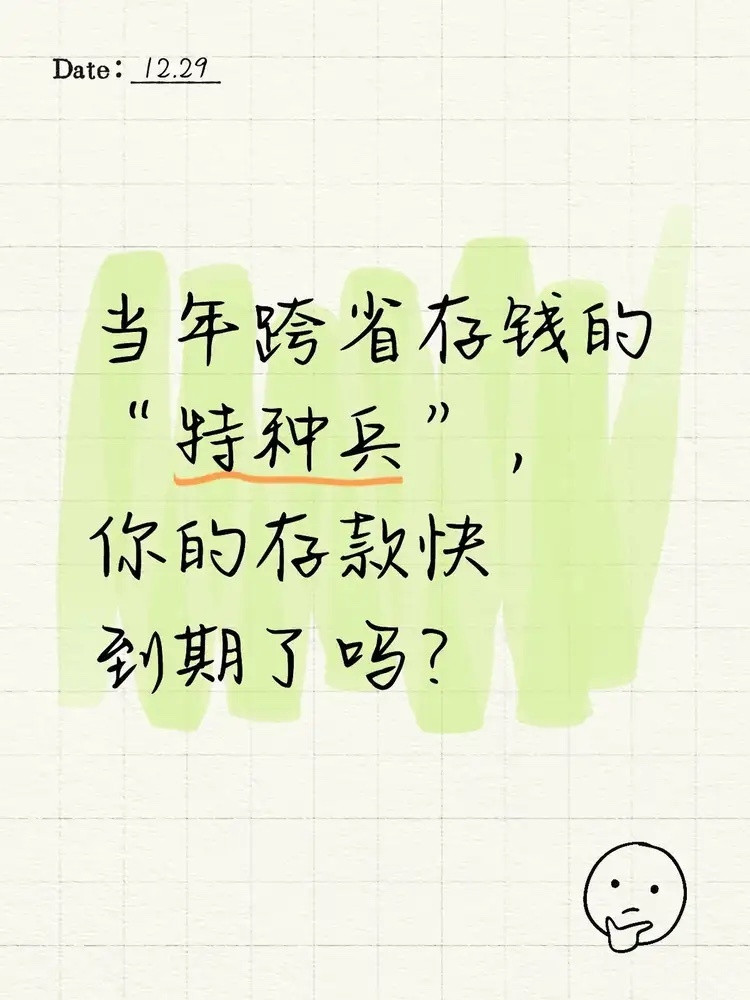 Date: 12.29
当年跨省存钱的
“特种兵”,
你的存款快
到期了吗?